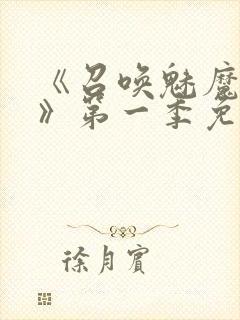 《召唤魅魔
》第一季免
徐月宾